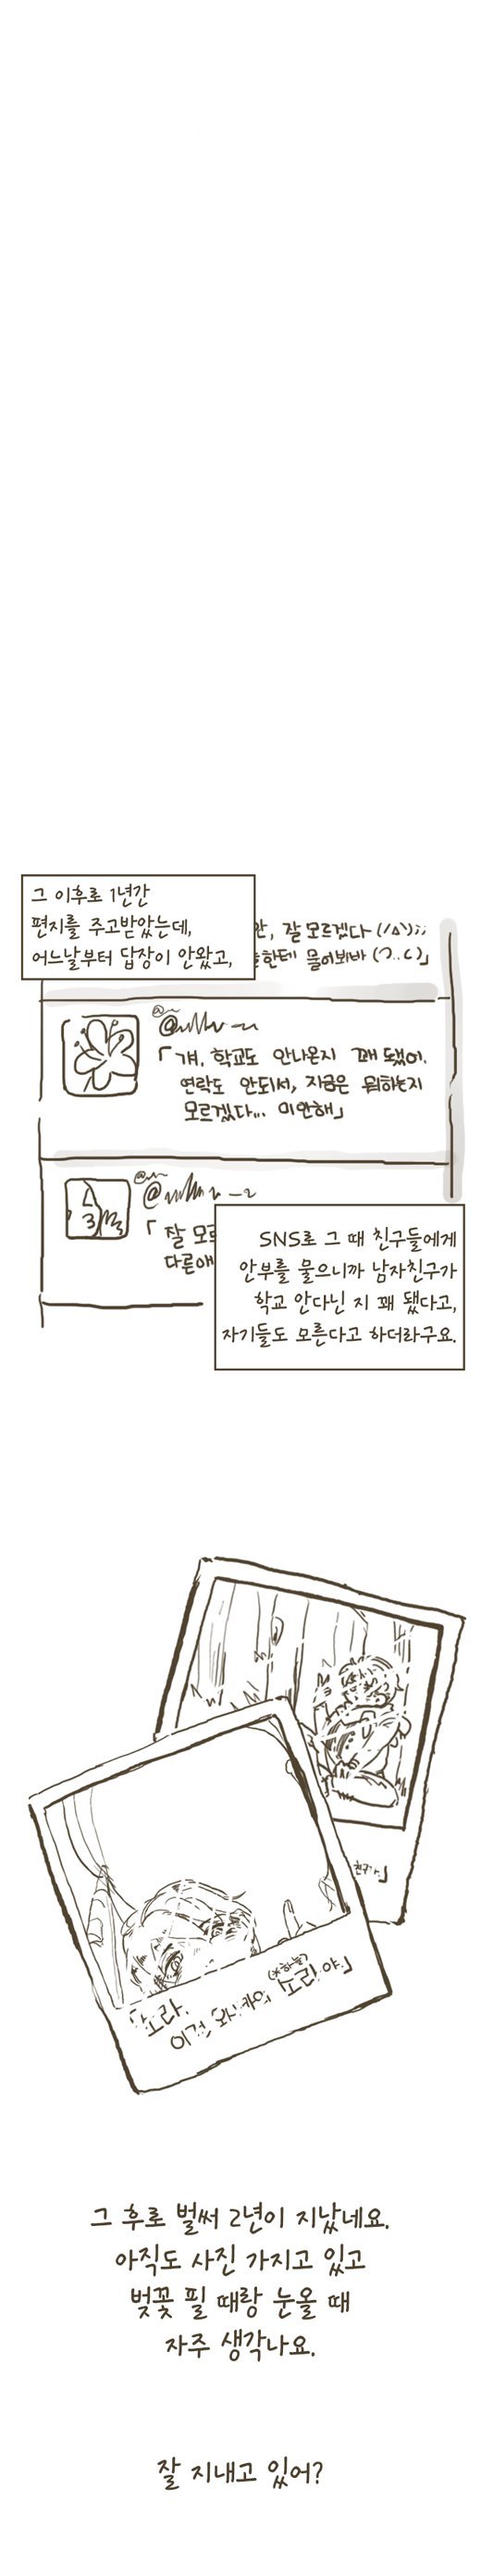 그 이후로 1년간
편지를 주고받았는데,
어느날부터 답장이 안왔고,
잘 모르겠다 (/△\);;
한테 물어봐바
「걔, 학교도 안나온지 꽤 됐어.
연락도 안되서, 지금은 뭐하는지
모르겠다... 미안해」
「잘 모르
다른애
SNS로 그 때 친구들에게
안부를 물으니까 남자친구가
학교 안다닌 지 꽤 됐다고,
자기들도 모른다고 하더라구요.
이건
그 후로 벌써 2년이 지났네요.
아직도 사진 가지고 있고
벚꽃 필 때랑 눈올 때
자주 생각나요.
잘 지내고 있어?